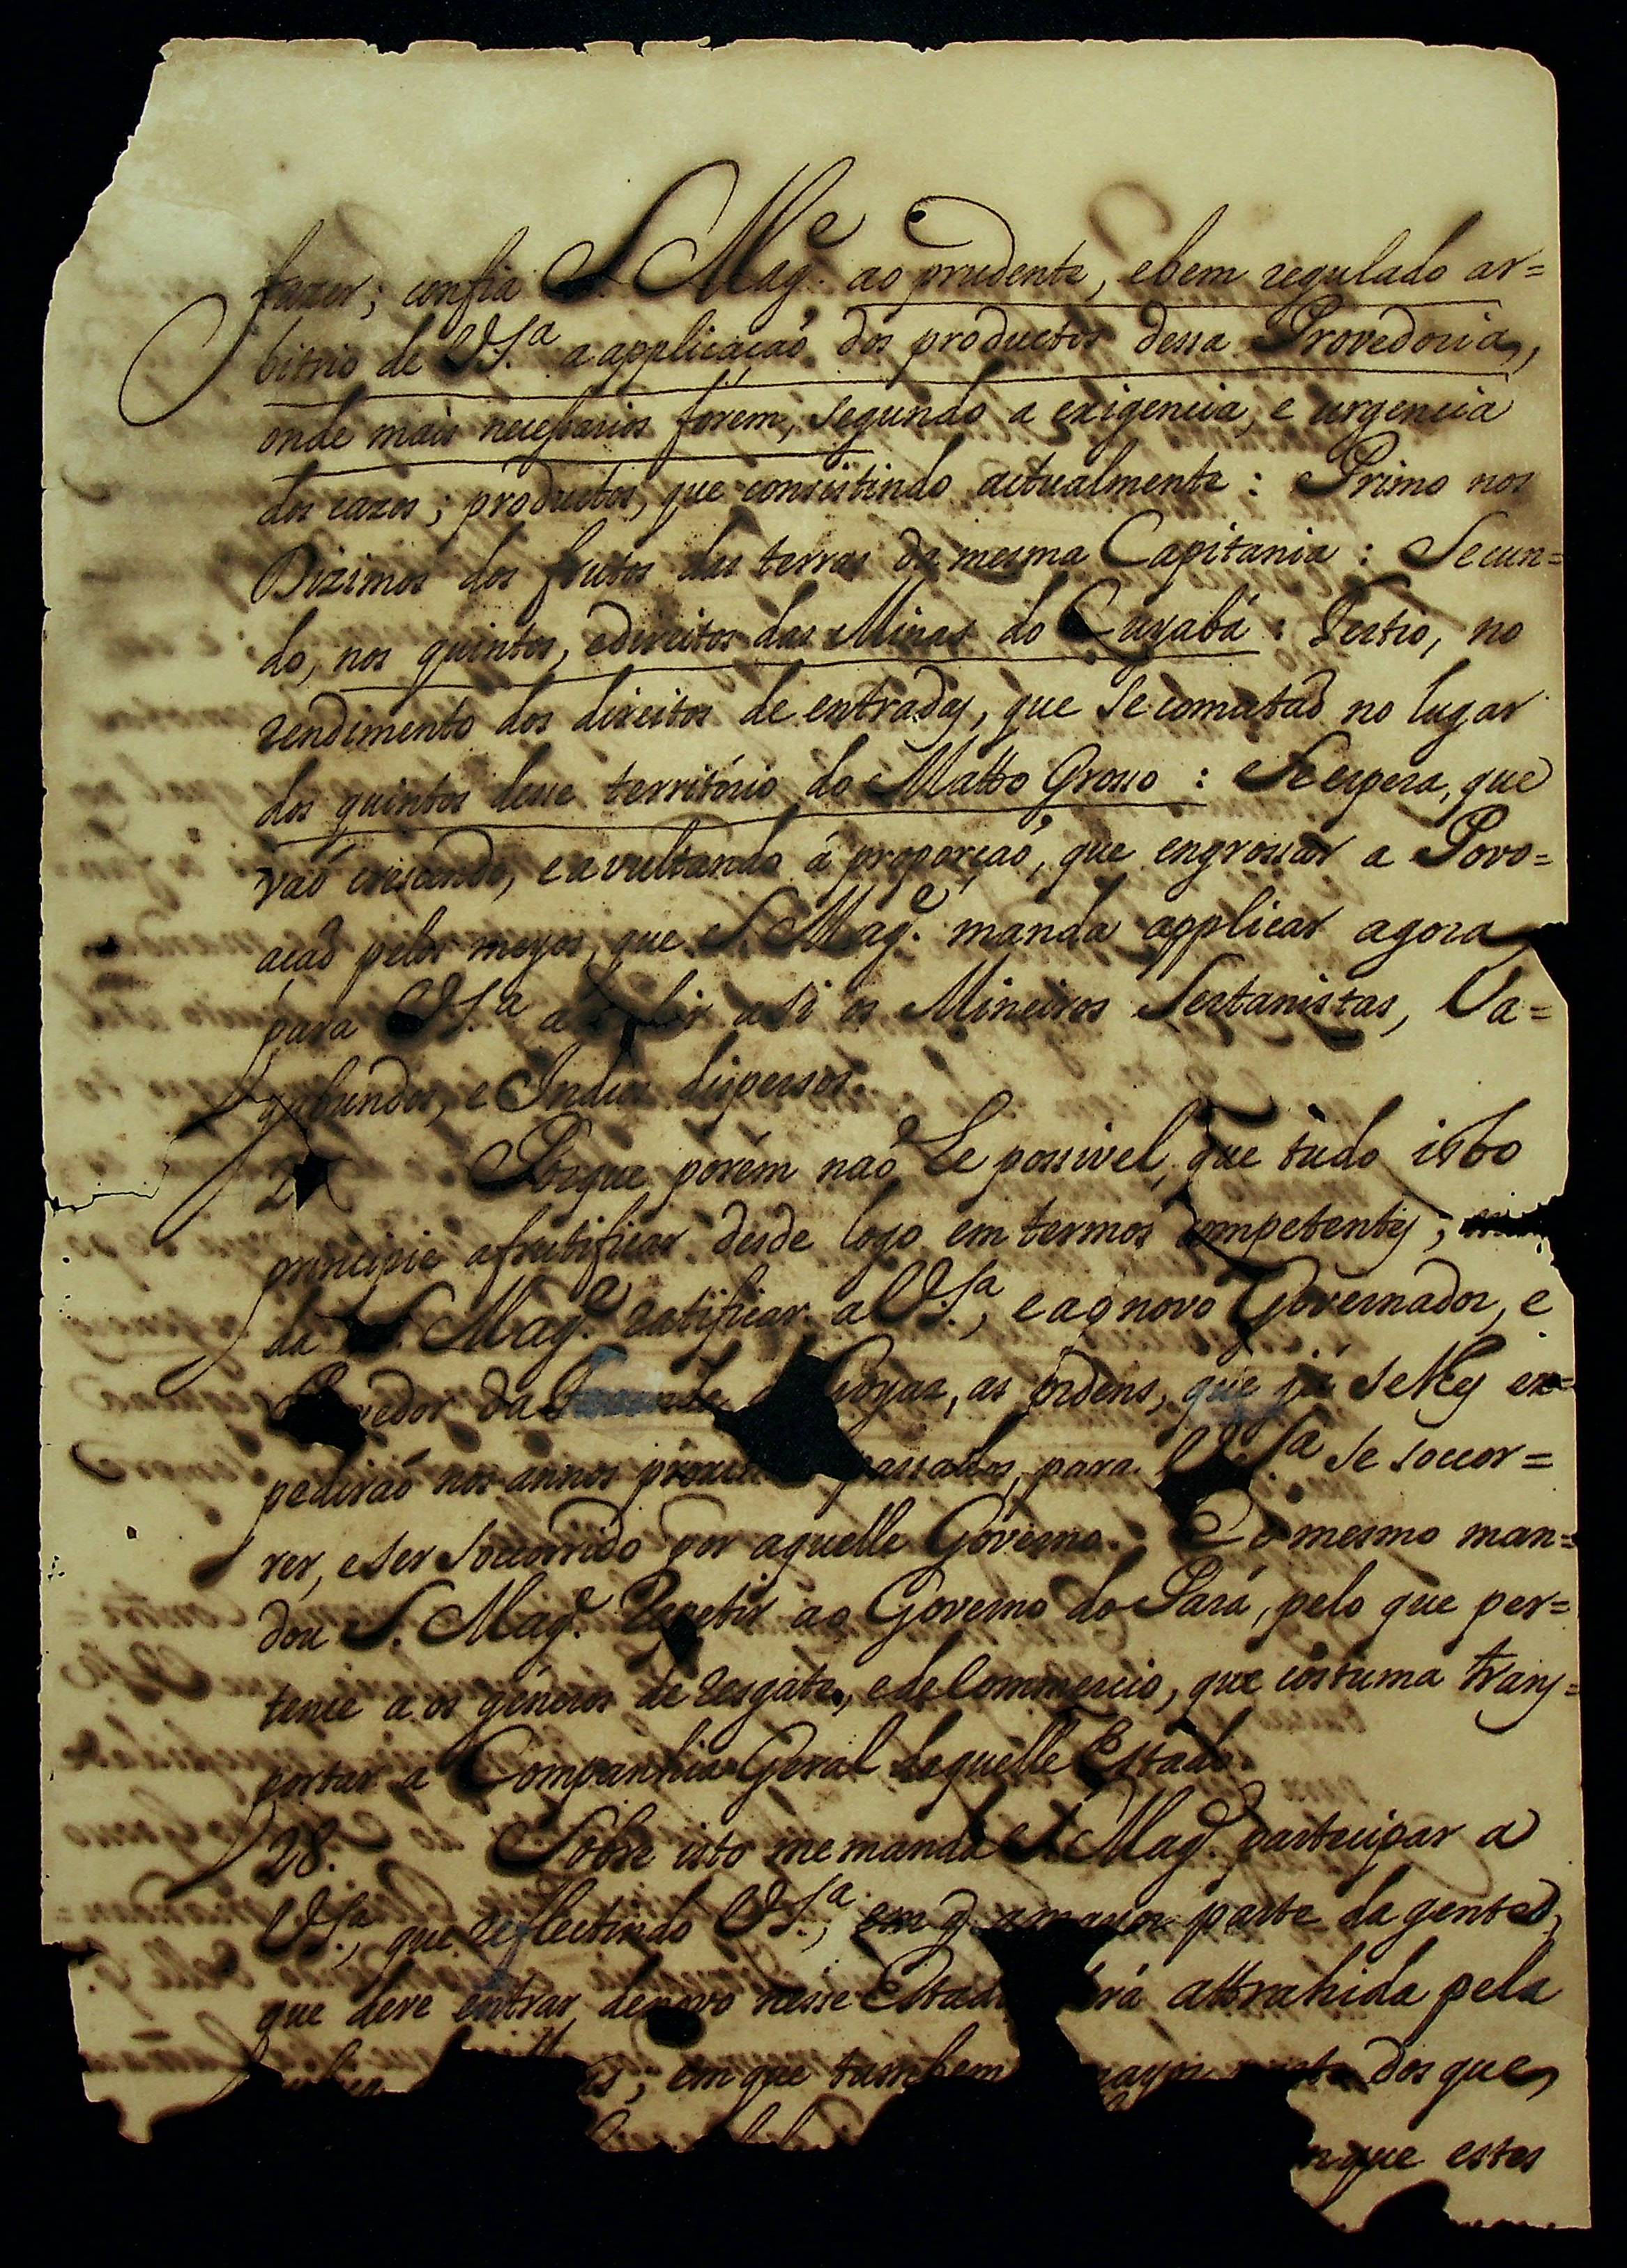 fazer; confia S. Mag.e ao prudente, ebem regulado ar=
bitrio de V.S.a aapplicação dos productos dessa Provedoria,
onde mais necessarios fórem, segundo a exigencia, e urgencia
dos cazos; productos, que consistindo actualmente: Primo nos
Dizimos dos frutos das terras da mesma Capitania: Secun=
do, nos quintos, edireitos das Minas do Cuyabá: Tertio, no
rendimento dos direitos de entradas, que se comutaõ no lugar
dos quintos desse território do Matto Grosso: Se espera, que
vaõ crescendo, e avultando á proporçaõ, que engrossar a Povo=
açaõ pelos meyos, que S. Mag.e manda applicar agora
para V.S.a a asi os Mineiros Sertanistas, Va=
gabundos, e Indios dispersos.
2 Porque porém naõ he possivel, que tudo isto
principie afrutificar desde logo em termos competentes;
da S. Mag.e ratificar a V.S.a, e ao novo Governador, e
vedor da Goyaz, as ordens, que já selhes ex=
pediraõ nos annos passados, para V.S.a se soccor=
rer, eser soccorrido por aquelle Governo. E o mesmo man=
dou S. Mag.e repetir ao Governo do Pará, pelo que per=
tence a os géneros de resgate, ede Commercio, que costuma trans=
portar a Companhia Geral daquelle Estado.
28. Sobre isto me manda S. Mag.e participar a
V.S.a, que reflectindo V.S.a, em q. a mayor parte da gente,
que deve entrar denovo nesse Estado rá attrahida pela
; em que tambem mayor parte dos que
que estes